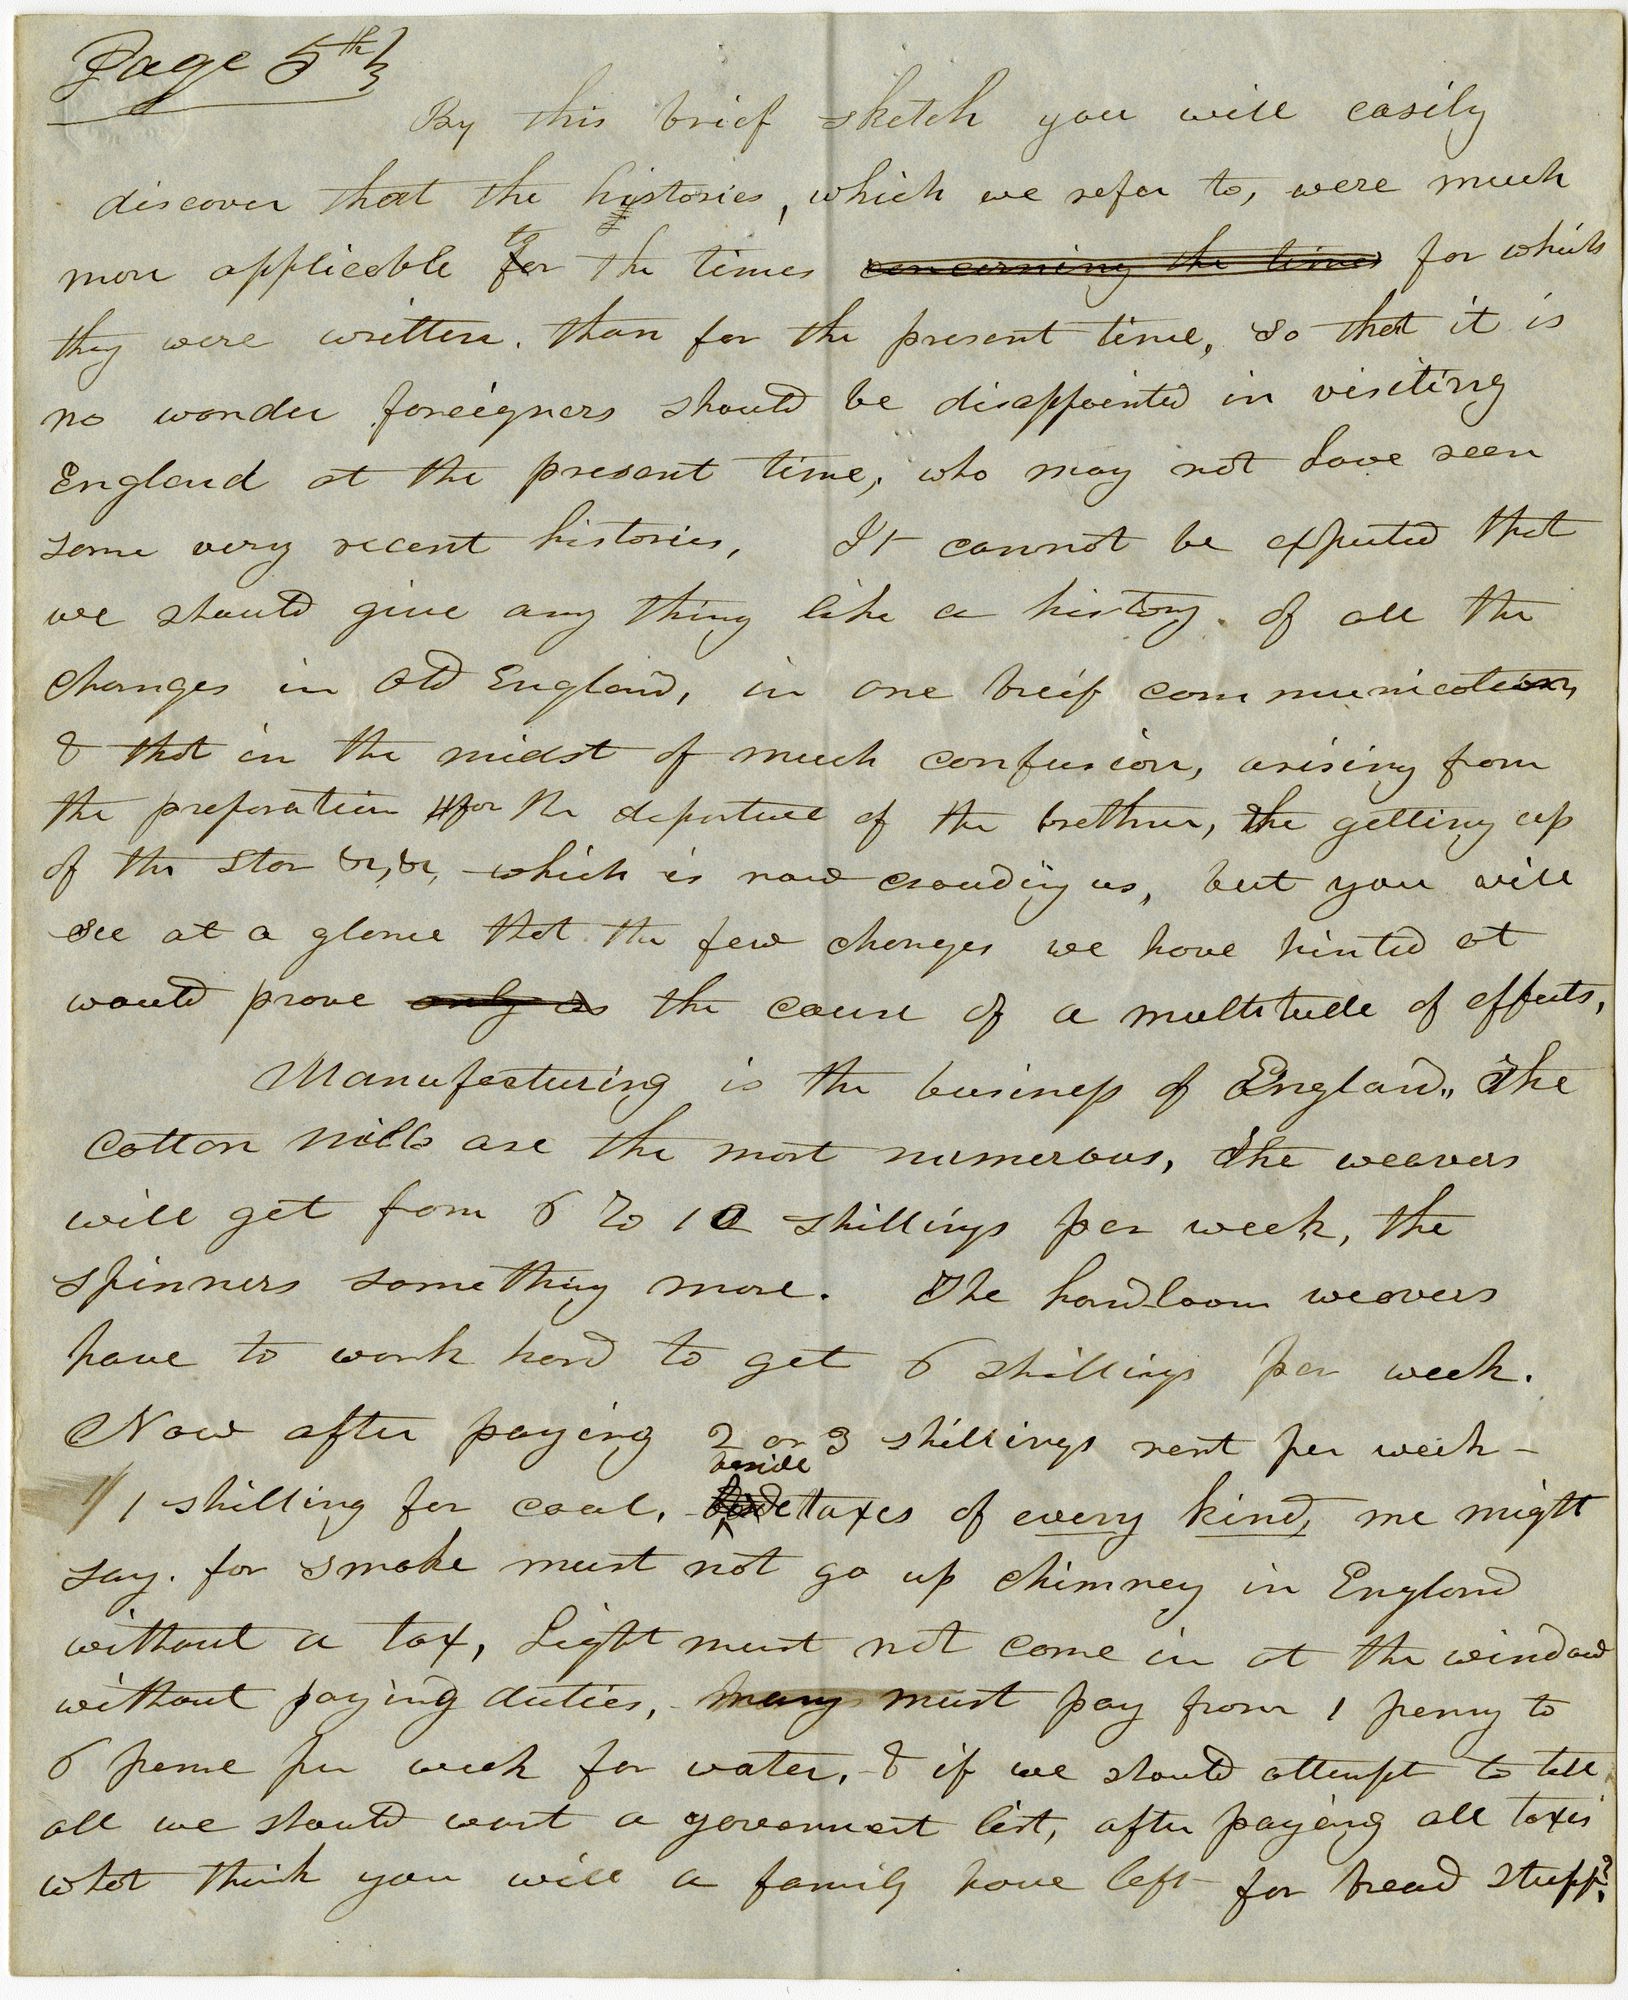 Page 5th}
By this brief sketch you will easily
discover that the histories, which we refer to, were much
more applicable to for the times concerning the times for which
they were written. than for the present time, so that it is
no wonder foreigners should be disappointed in visiting
England at the present time, who may not have seen
some very recent histories, It cannot be expected that
we should give any thing like a history of all the
changes in Old England, in one breif communication,
& that in the midst of much confusion, arising from
the preparation for the departure of the brethren, the getting up
of the Star &c, &c, which is now crowding us, but you will
see at a glance that the few changes we have hinted at
would prove only as the cause of a multitude of effects,
Manufacturing is the business of England,, The
cotton Mills are the most numerous, the weavers
will get from 6 to 10 shillings per week, the
spinners something more. The hand-loom weavers
have to work hard to get 6 shillings per week.
Now after paying 2 or 3 shillings rent per week -
beside
1 shilling for coal, taxes of every kind, we might
say. for smoke must not go up chimney in England
without a tax, Light must not come in at the window
without paying duties, many must pay from 1 penny to
6 pence per week for water, & if we should attempt to tell
all we should want a government list, after paying all taxes
what think you will a family have left for bread stuff?